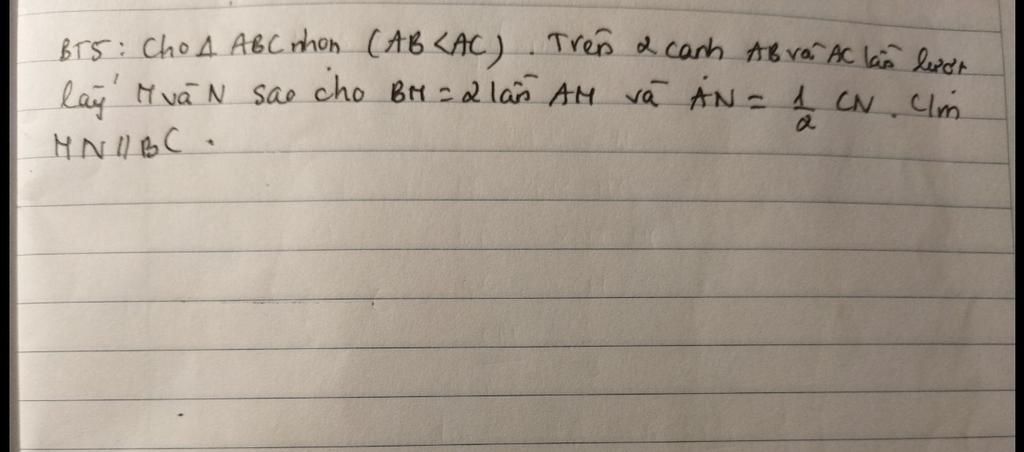 BT5: Cho Δ ABC nhọn (AB < AC). Trên 2 cạnh AB và AC lần lượt
lấy M và N sao cho BM = 2 lần AM và AN = 1/2 CN. C/m
MN // BC.